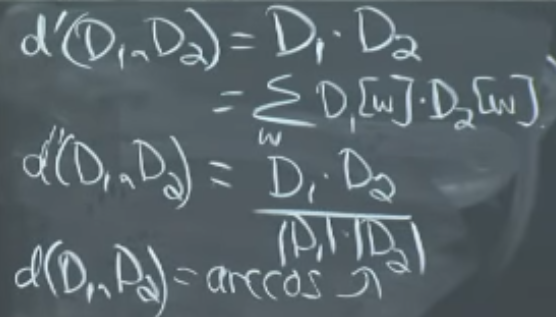 d'(D₁, D₂) = D₁ · D₂
= Σ D₁[w] · D₂[w]
w
d''(D₁, D₂) = D₁ · D₂
|D₁| · |D₂|
d(D₁, D₂) = arccos ↗